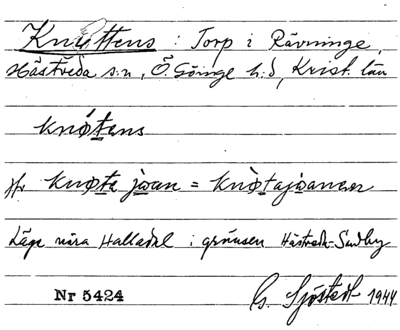 Knuttens : Torp i Rävninge,
Hästveda s:n, Ö. Göinge h:d, Krist. län
knǿtens
Jfr knøta joan = knøtajoanen
Läge nära Halladal i gränsen Hästveda-Sandby
Nr 5424 G. Sjöstedt 1944